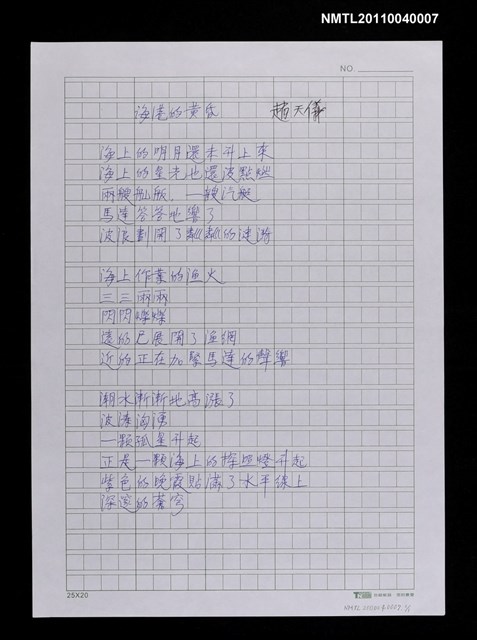 NMTL20110040007
NO.
海港的黃昏 趙天儀
海上的明月還未升上來
海上的星光也還沒點燃
兩艘舢舨，一艘汽艇
馬達答答地響了
波浪劃開了粼粼的漣漪
海上作業的漁火
三三兩兩
閃閃爍爍
遠的已展開了漁網
近的正在加緊馬達的聲響
潮水漸漸地高漲了
波濤洶湧
一顆孤星升起
正是一顆海上的探照燈升起
紫色的晚霞貼滿了水平線上
深邃的蒼穹
25X20
NMTL20110040007